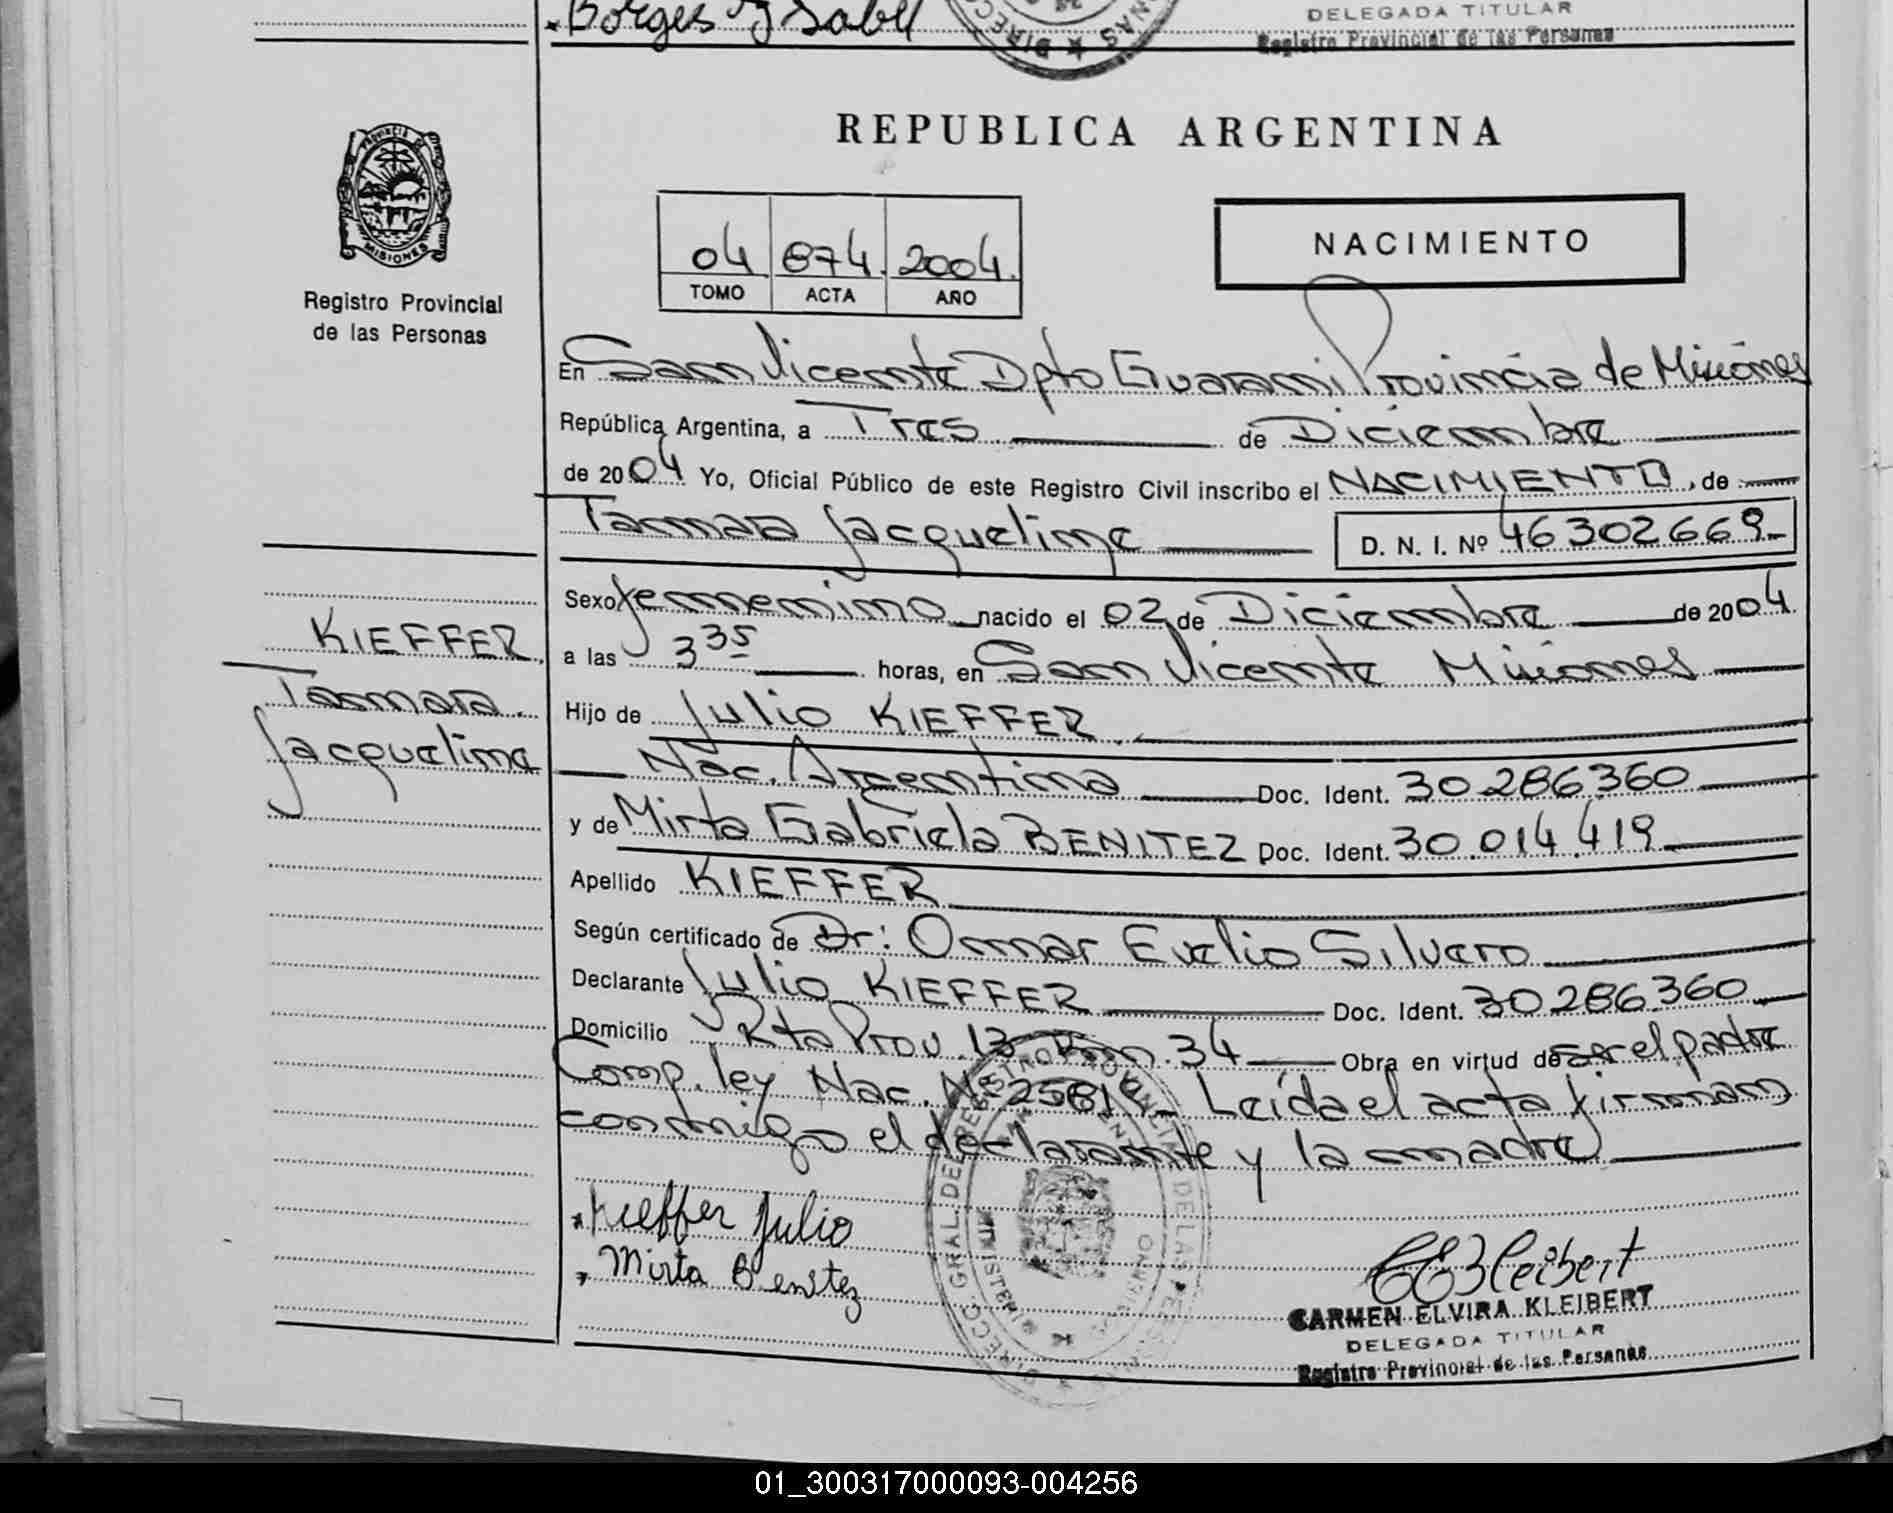 Borges Isabel
DELEGADA TITULAR
Registro Provincial de las Personas
REPUBLICA ARGENTINA
PROVINCIA DE
MISIONES
Registro Provincial
de las Personas
04 874 2004
TOMO ACTA AÑO
NACIMIENTO
En San Vicente Dpto Guarani Provincia de Misiones
República Argentina, a Tres de Diciembre
de 2004 Yo, Oficial Público de este Registro Civil inscribo el NACIMIENTO, de
Tamara Jacqueline D. N. I. Nº 46302669
Sexo femenino nacido el 02 de Diciembre de 2004
a las 3 35 horas, en San Vicente Misiones
KIEFFER
Tamara
Jacqueline
Hijo de Julio KIEFFER
Nac. Argentina Doc. Ident. 30 286 360
y de Mirta Gabriela BENITEZ Doc. Ident. 30.014.419
Apellido KIEFFER
Según certificado de Dr: Omar Evelio Silvero
Declarante Julio KIEFFER Doc. Ident. 30 286.360
Domicilio Rta Prov. 13 Km. 34 Obra en virtud de ser el padre
Comp. ley Nac. Nº 25819 Leída el acta firman
conmigo el declarante y la madre
Kieffer Julio
Mirta Benitez
CEKleibert
CARMEN ELVIRA KLEIBERT
DELEGADA TITULAR
Registro Provincial de las Personas
01_300317000093-004256